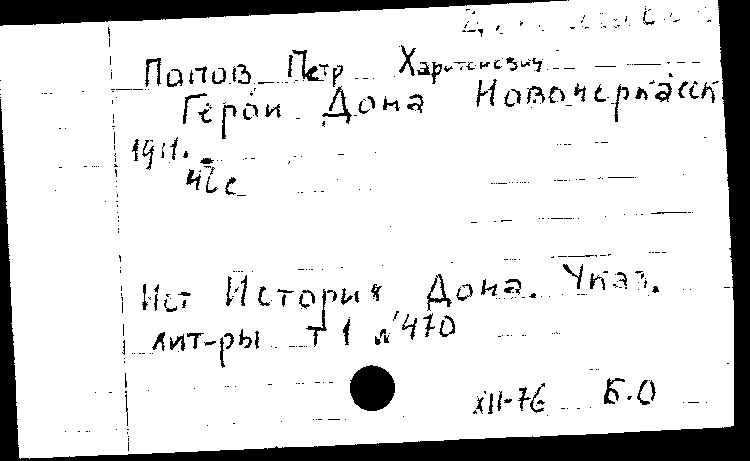 Попов Петр Харитонович
Герои Дона Новочеркасск
1911.
42 с
Ист История Дона. Указ.
лит-ры т 1 №470
XII-76 Б.О